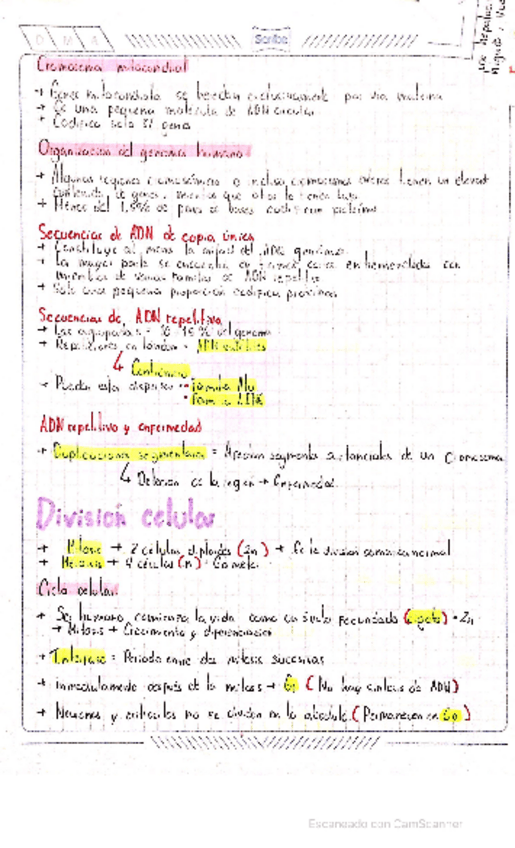 D M A
Scribe
Cromosoma mitocondrial
→ Genes mitocondriales se heredan exclusivamente por vía materna
→ Es una pequeña molécula de ADN circular
→ Codifica solo 37 genes
Organización del genoma humano
→ Algunas regiones cromosómicas o incluso cromosomas enteros tienen un elevado
contenido de genes, mientras que otros lo tienen bajo
→ Menos del 1.5% de pares de bases codifican proteína
Secuencias de ADN de copia única
→ Constituye al menos la mitad del ADN genómico
→ La mayor parte se encuentra en tramos cortos entremezclados con
miembros de varias familias de ADN repetitivo
→ Solo una pequeña proporción codifica proteínas
Secuencias de ADN repetitivo
→ Las agrupadas = 10-15% del genoma
→ Repeticiones en tándem = ADN satélites
↳ Centrómero
→ Pueden estar dispersas • Familia Alu
• Familia LINE
ADN repetitivo y enfermedad
→ Duplicaciones segmentarias = Abarcan segmentos sustanciales de un cromosoma
↳ Deleción de la región → Enfermedad
División celular
→ Mitosis → 2 células diploides (2n) → Es la división somática normal
→ Meiosis → 4 células (n) • Gameto
Ciclo celular
→ Ser humano comienza la vida como un óvulo fecundado (cigoto) • 2n
→ Mitosis → Crecimiento y diferenciación
→ Interfase = Periodo entre dos mitosis sucesivas
→ inmediatamente después de la mitosis → G1 (No hay síntesis de ADN)
→ Neuronas y eritrocitos no se dividen en lo absoluto (Permanecen en G0)
Escaneado con CamScanner